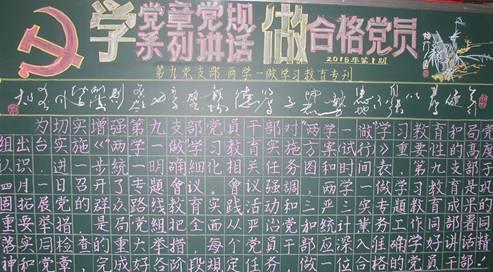 学 党章党规 做 合格党员
系列讲话
2016年第1期
第九党支部两学一做学习教育专刊
为切实增强第九支部党员干部对“两学一做”学习教育和局党
组出台实施《“两学一做”学习教育实施方案（试行）》重要性的高度
认识，进一步统一明确细化相关任务图和时间表，第九支部于
四月一日召开了专题会议，会议强调，两学一做学习教育是巩
固拓展党的群众路线教育实践活动和三严三实专题教育成果的
重要举措，是局党组把全面从严治党和统计业务工作同部署同
落实同检查的重大举措，每个党员干部应深入准确学好讲话精
神和党章，完成好各阶段规定任务，做一位合格的党员干部！